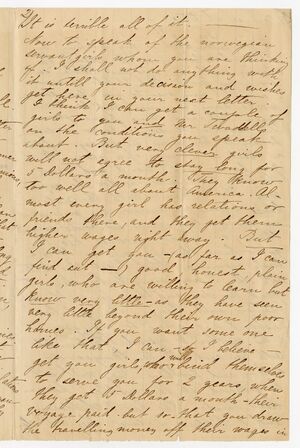 It is terrible all of it; —
Now to speak of the norwegian
servant girls, whom you are thinking
of. I shall not do anything with
it untill your decision and wishes
get here in your next letter.
I think I can get a couple of
girls to you and Mr
on the conditions you speak
about. But very clever girls
will not agree to stay long for
5 Dollars a month. They know
too well all about America. Al-
most every girl has relations or
friends there, and they get them
higher wages right away. But
I can get you — as far as I can
find out — good, honest, plain
girls, who are willing to learn but
know very little — as they have seen
very little beyond their own poor
homes. If you want some one
like that I can — so I believe —
get you girls, who will bind themselves
to serve you for 2 years, when
they get 5 dollars a month — their
voyage paid but so — that you draw
the travelling money off their wages in